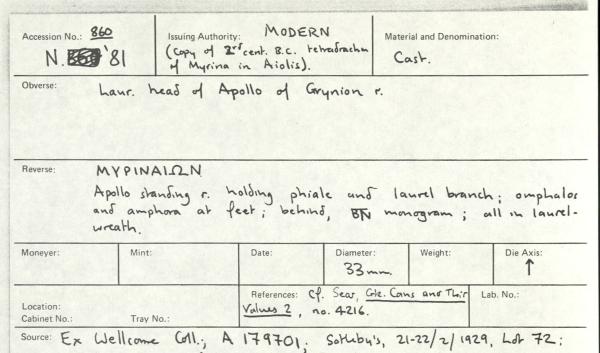 Accession No.: 860
N. '81
Issuing Authority: MODERN
(Copy of 2nd cent. B.C. tetradrachm
of Myrina in Aiolis).
Material and Denomination:
Cast.
Obverse: Laur. head of Apollo of Grynion r.
Reverse: ΜΥΡΙΝΑΙΩΝ
Apollo standing r. holding phiale and laurel branch; omphalos
and amphora at feet; behind, monogram; all in laurel-
wreath.
Moneyer:
Mint:
Date:
Diameter:
33mm.
Weight:
Die Axis:
↑
Location:
Cabinet No.:
Tray No.:
References: Cf. Sear, Gk. Coins and Their
Values 2, no. 4216.
Lab. No.:
Source: Ex Wellcome Coll.; A 179701; Sotheby's, 21-22/2/1929, Lot 72;